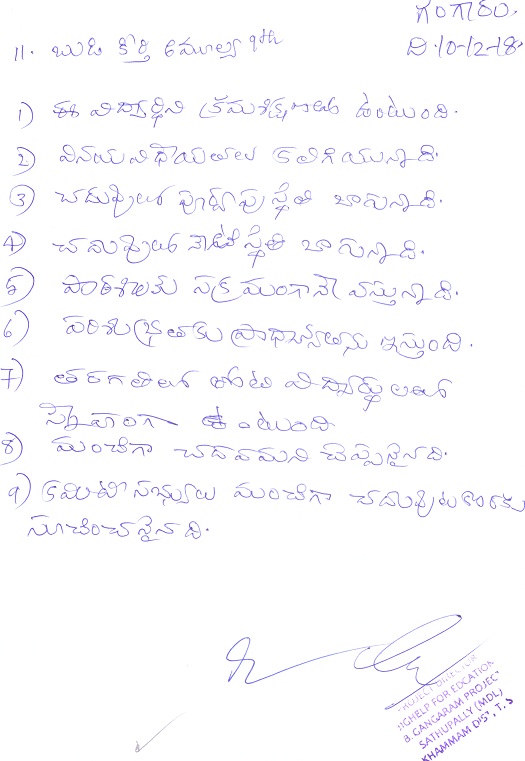 గంగారం.
11. బుడి కీర్తి అమూల్య 9th
ది.10-12-18.
1) ఈ విద్యార్థిని క్రమశిక్షణతో ఉంటుంది.
2) వినయ విధాయతలు కలిగియున్నాది.
3) చదువులో పూర్వపు స్థితి బాగున్నాది.
4) చదువులో నేటి స్థితి బాగున్నాది.
5) పాఠశాలకు సక్రమంగానే వస్తున్నాది.
6) పరిశుభ్రతకు ప్రాధాన్యతను ఇస్తుంది.
7) తరగతిలో తోటి విద్యార్థులతో
స్నేహంగా ఉంటుంది
8) మంచిగా చదవమని చెప్పనైనది.
9) కమిటీ సభ్యులు మంచిగా చదువుట కొరకు
సూచించనైనది.
PROJECT DIRECTOR
HELP FOR EDCATION
B. GANGARAM PROJECT
SATHUPALLY (MDL)
KHAMMAM DIST, T. S